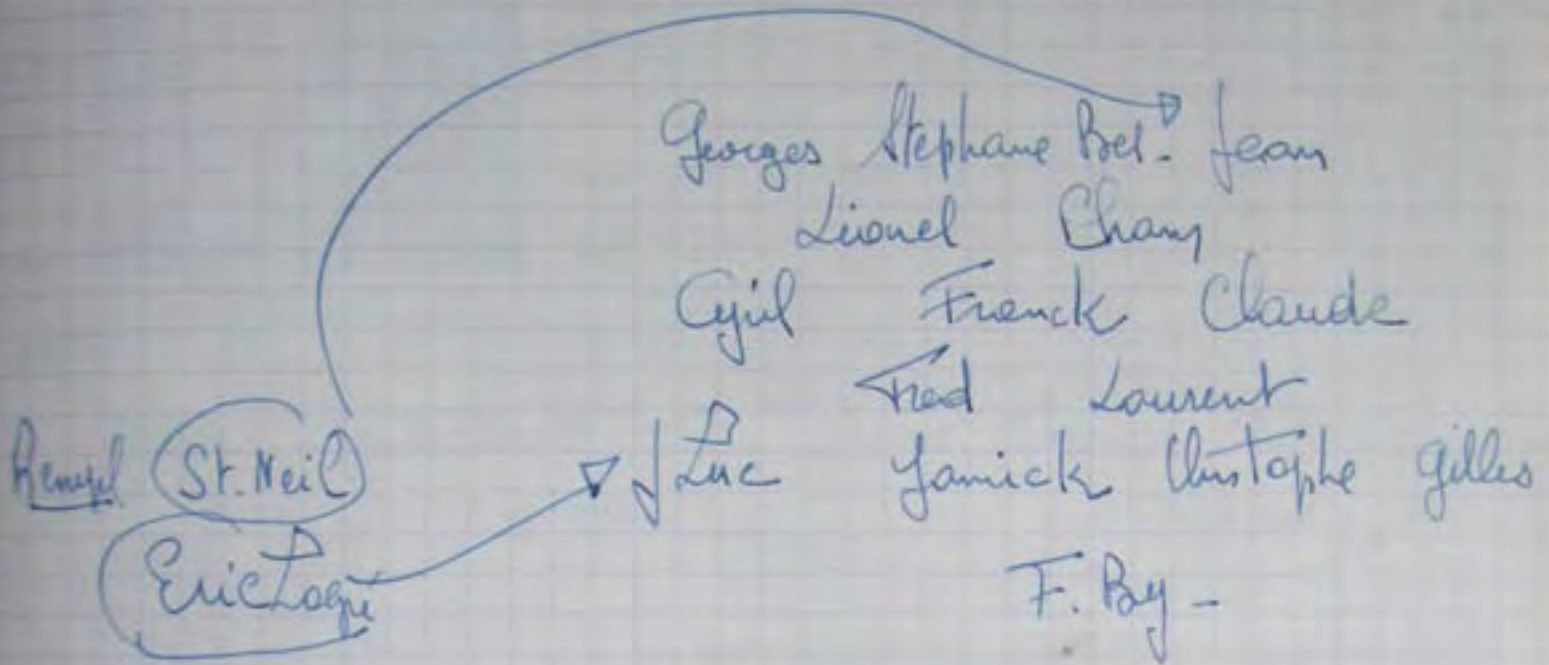 Georges Stephane Bel. Jean
Lionel Chany
Cyril Franck Claude
Fred Laurent
St. Neil
J Luc Yannick Christophe Gilles
Eric
F. By -